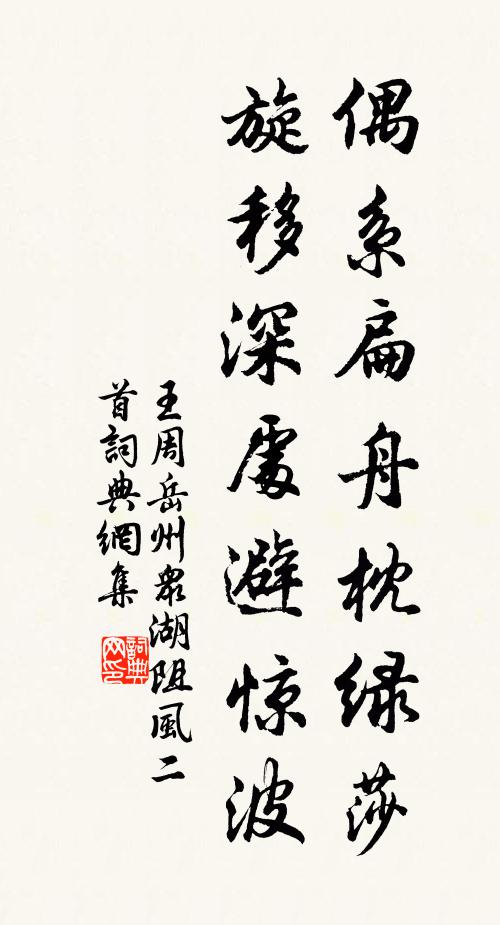 偶系扁舟枕绿莎
旋移深處避惊波
王周岳州眾湖阻風二
首詞典網集
詞典網印